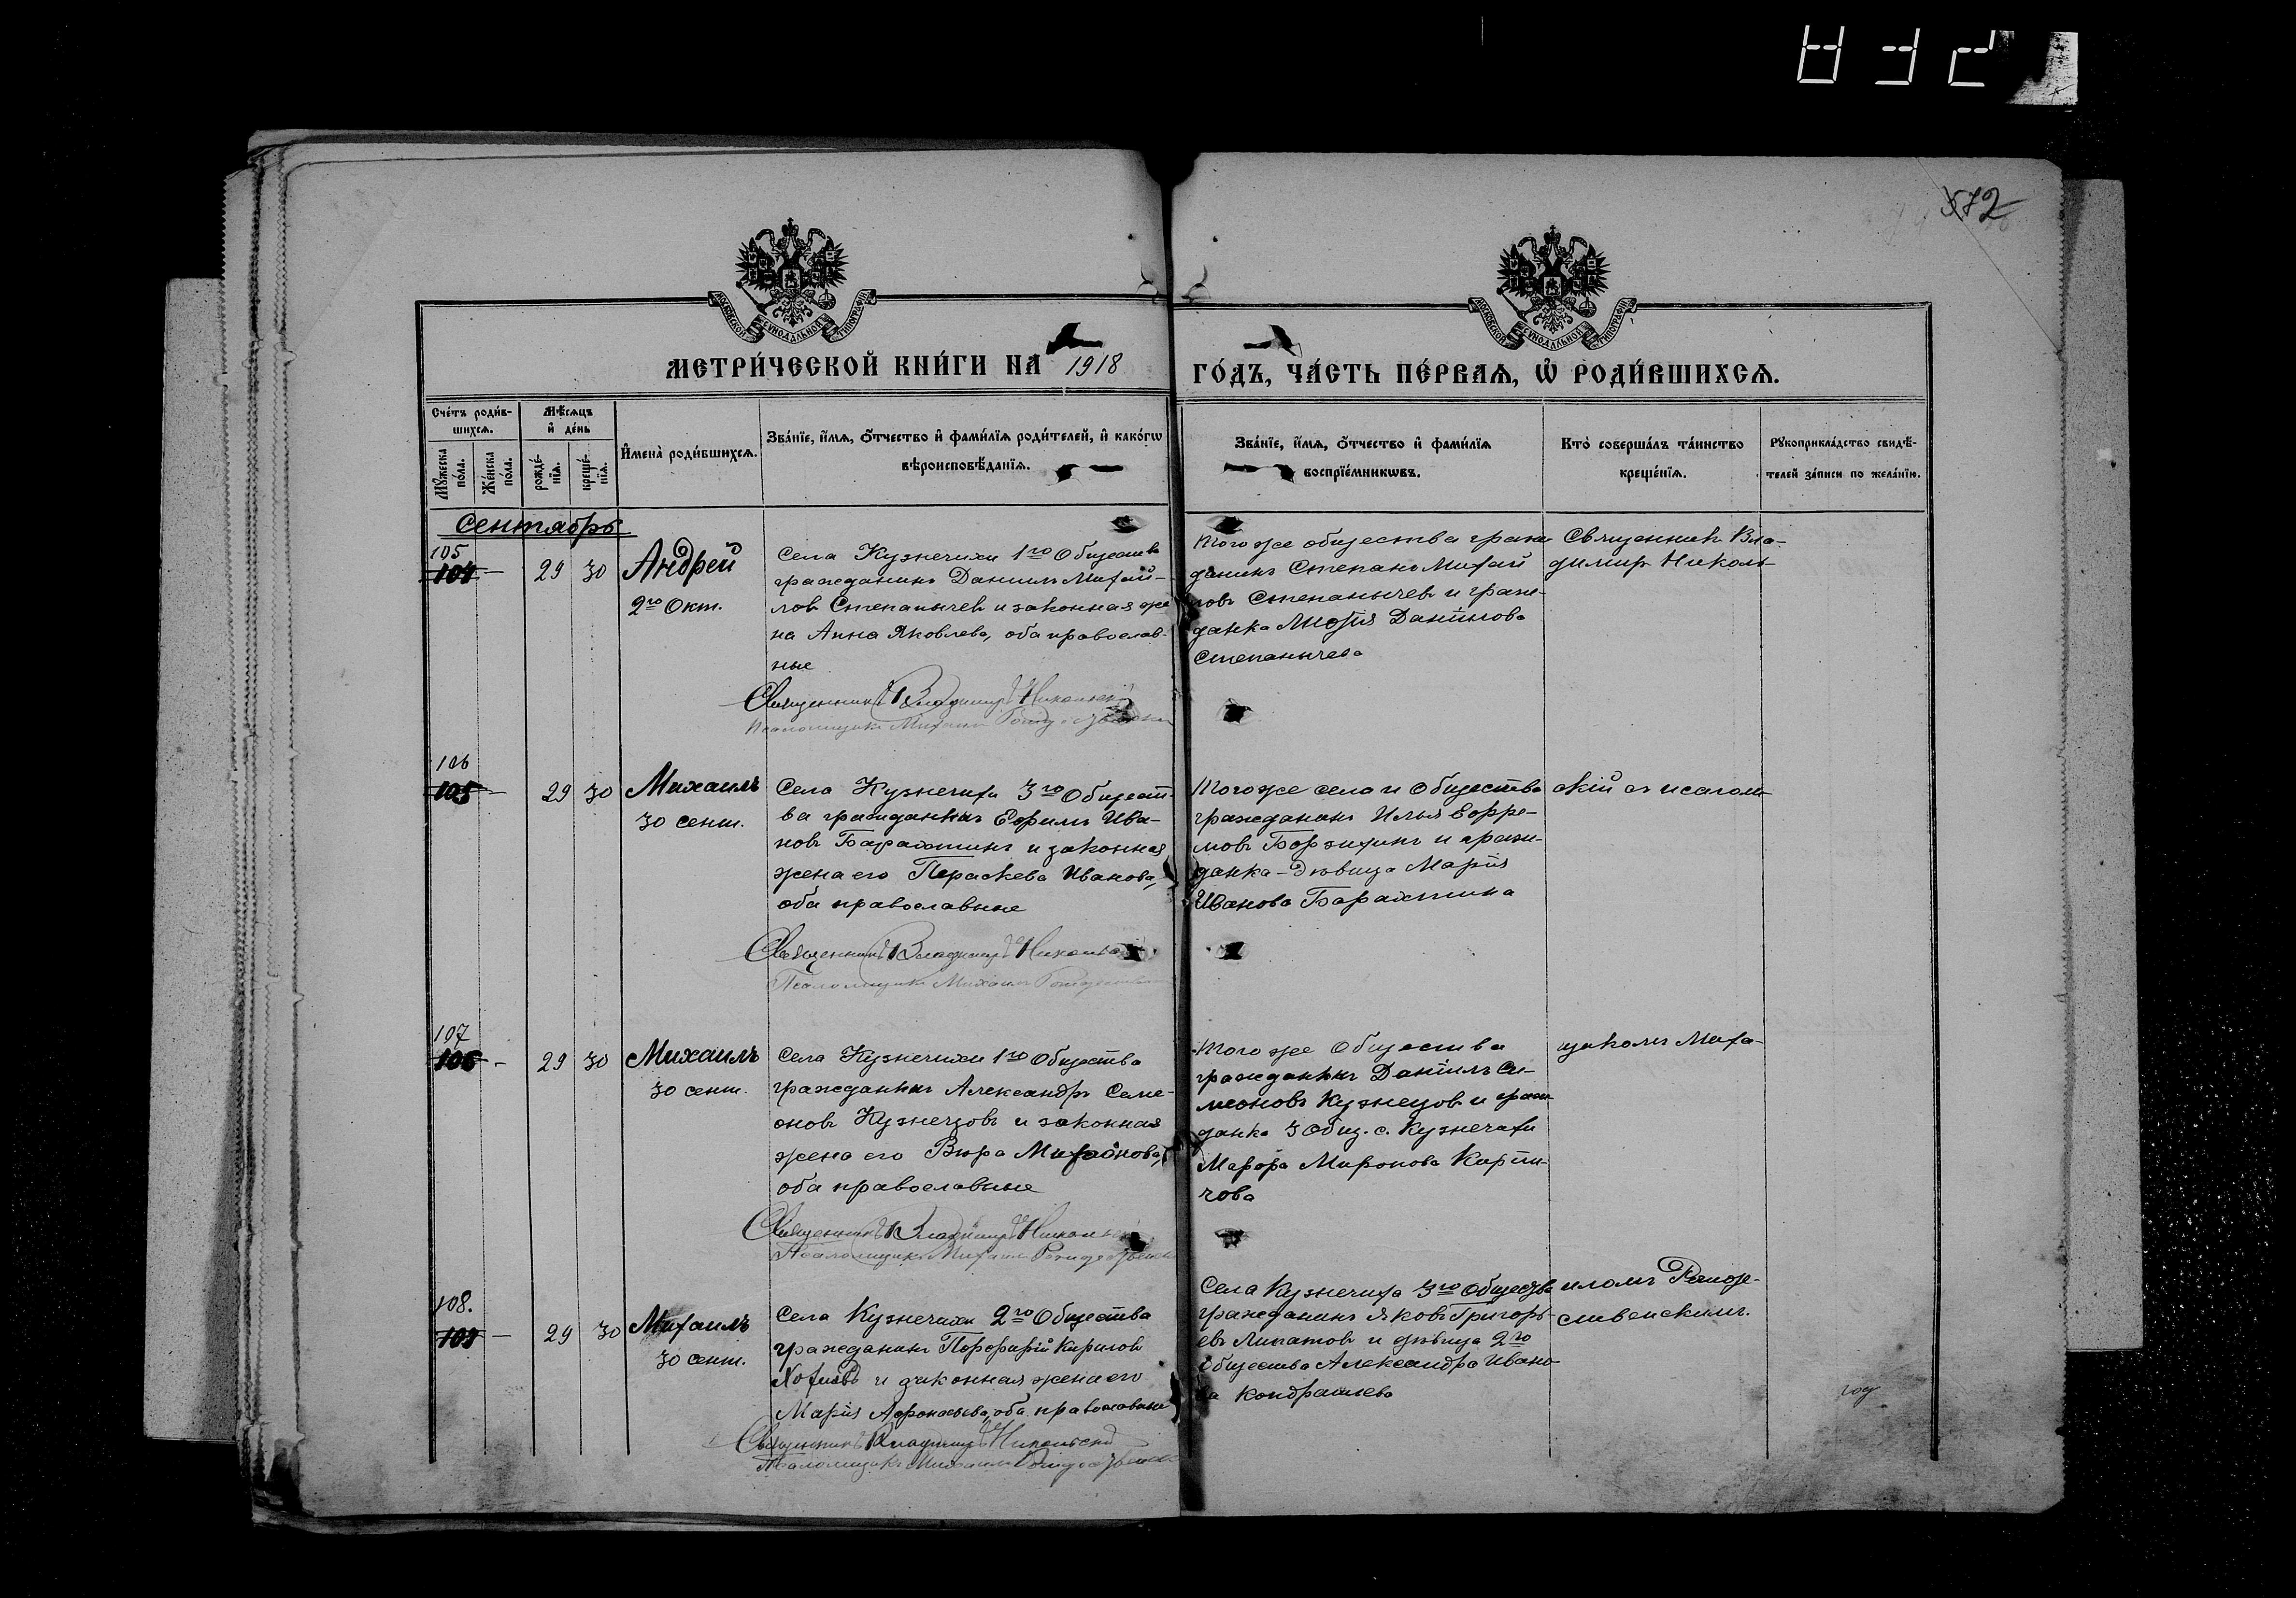 832
572
МОСКОВСКОЙ СѴНОДАЛЬНОЙ ТИПОГРАФІИ
МОСКОВСКОЙ СѴНОДАЛЬНОЙ ТИПОГРАФІИ
МЕТРИ́ЧЕСКОЙ КНИ́ГИ НА 1918
ГО́ДЪ, ЧА́СТЬ ПЕ́РВАѦ, Ѡ҆ РОДИ́ВШИХСѦ.
Сче́тъ роди́в-
шихсѧ.
Мѣ́сѧцъ
и҆ де́нь
Мꙋ́жеска
по́ла.
Же́нска
по́ла.
рожде́-
нїѧ.
креще́-
нїѧ.
И҆мена̀ роди́вшихсѧ.
Зва́нїе, и҆́мѧ, ѻ҆́тчество и҆ фами́лїѧ роди́телей, и҆ како́гѡ
вѣроисповѣ́данїѧ.
Зва́нїе, и҆́мѧ, ѻ҆́тчество и҆ фами́лїѧ
воспрїе́мникѡвъ.
Кто̀ соверша́лъ та́инство
креще́нїѧ.
Рꙋкоприкла́дство свидѣ́-
телей за́писи по жела́нїю.
Сентябрь
105
104 - 29 30 Андрей
2го Окт.
Села Кузнечихи 1го Общества
гражданинъ Даниилъ Михай-
ловъ Степанычев и законная же
на Анна Яковлева, оба православ-
ные
Священникъ Владимиръ Никольскій
Псаломщикъ Михаилъ Рождественскій
Того же общества граж
данинъ Степанъ Михай
ловъ Степанычевъ и граж-
данка Данiилова
Степанычева
Священникъ Вла-
димир Николь-
106
105 - 29 30 Михаилъ
30 сент.
Села Кузнечиха 3го Общест-
ва гражданинъ Ефимъ Ива-
новъ Барахтинъ и законная
жена его Параскева Иванова,
оба православные
Священникъ Владимиръ Никольскій
Псаломщикъ Михаилъ Рождественскій
Того же села и Общества
гражданинъ Илья Ефре-
мовъ и граж-
данка-дѣвица Марія
Иванова Барахтина
скій съ псалом-
107
106 - 29 30 Михаилъ
30 сент.
Села Кузнечихи 1го Общества
гражданинъ Александръ Семе-
оновъ Кузнецовъ и законная
жена его Вѣра Михайлова,
оба православные
Священникъ Владимиръ Никольскій
Псаломщикъ Михаилъ Рождественскій
Того же Общества
гражданинъ Даніилъ Си-
меоновъ Кузнецов и граж
данка 3 Общ. с. Кузнечихи
Марѳа Миронова Кирпи-
чова
щикомъ Миха-
108.
- 29 30 Михаилъ
30 сент.
Села Кузнечихи 2го Общества
гражданинъ Порфирій Кирилов
и законная жена его
Марія Афонасьева, оба православные
Священникъ Владимиръ Никольскій
Псаломщикъ Михаилъ Рождественскій
Села Кузнечиха 3го Общества
гражданинъ Яковъ Григорь-
евъ Липатов и дѣвица 2го
Общества Александра Ивано-
ва Кондрашева
иломъ Рожде-
ственскимъ.
год